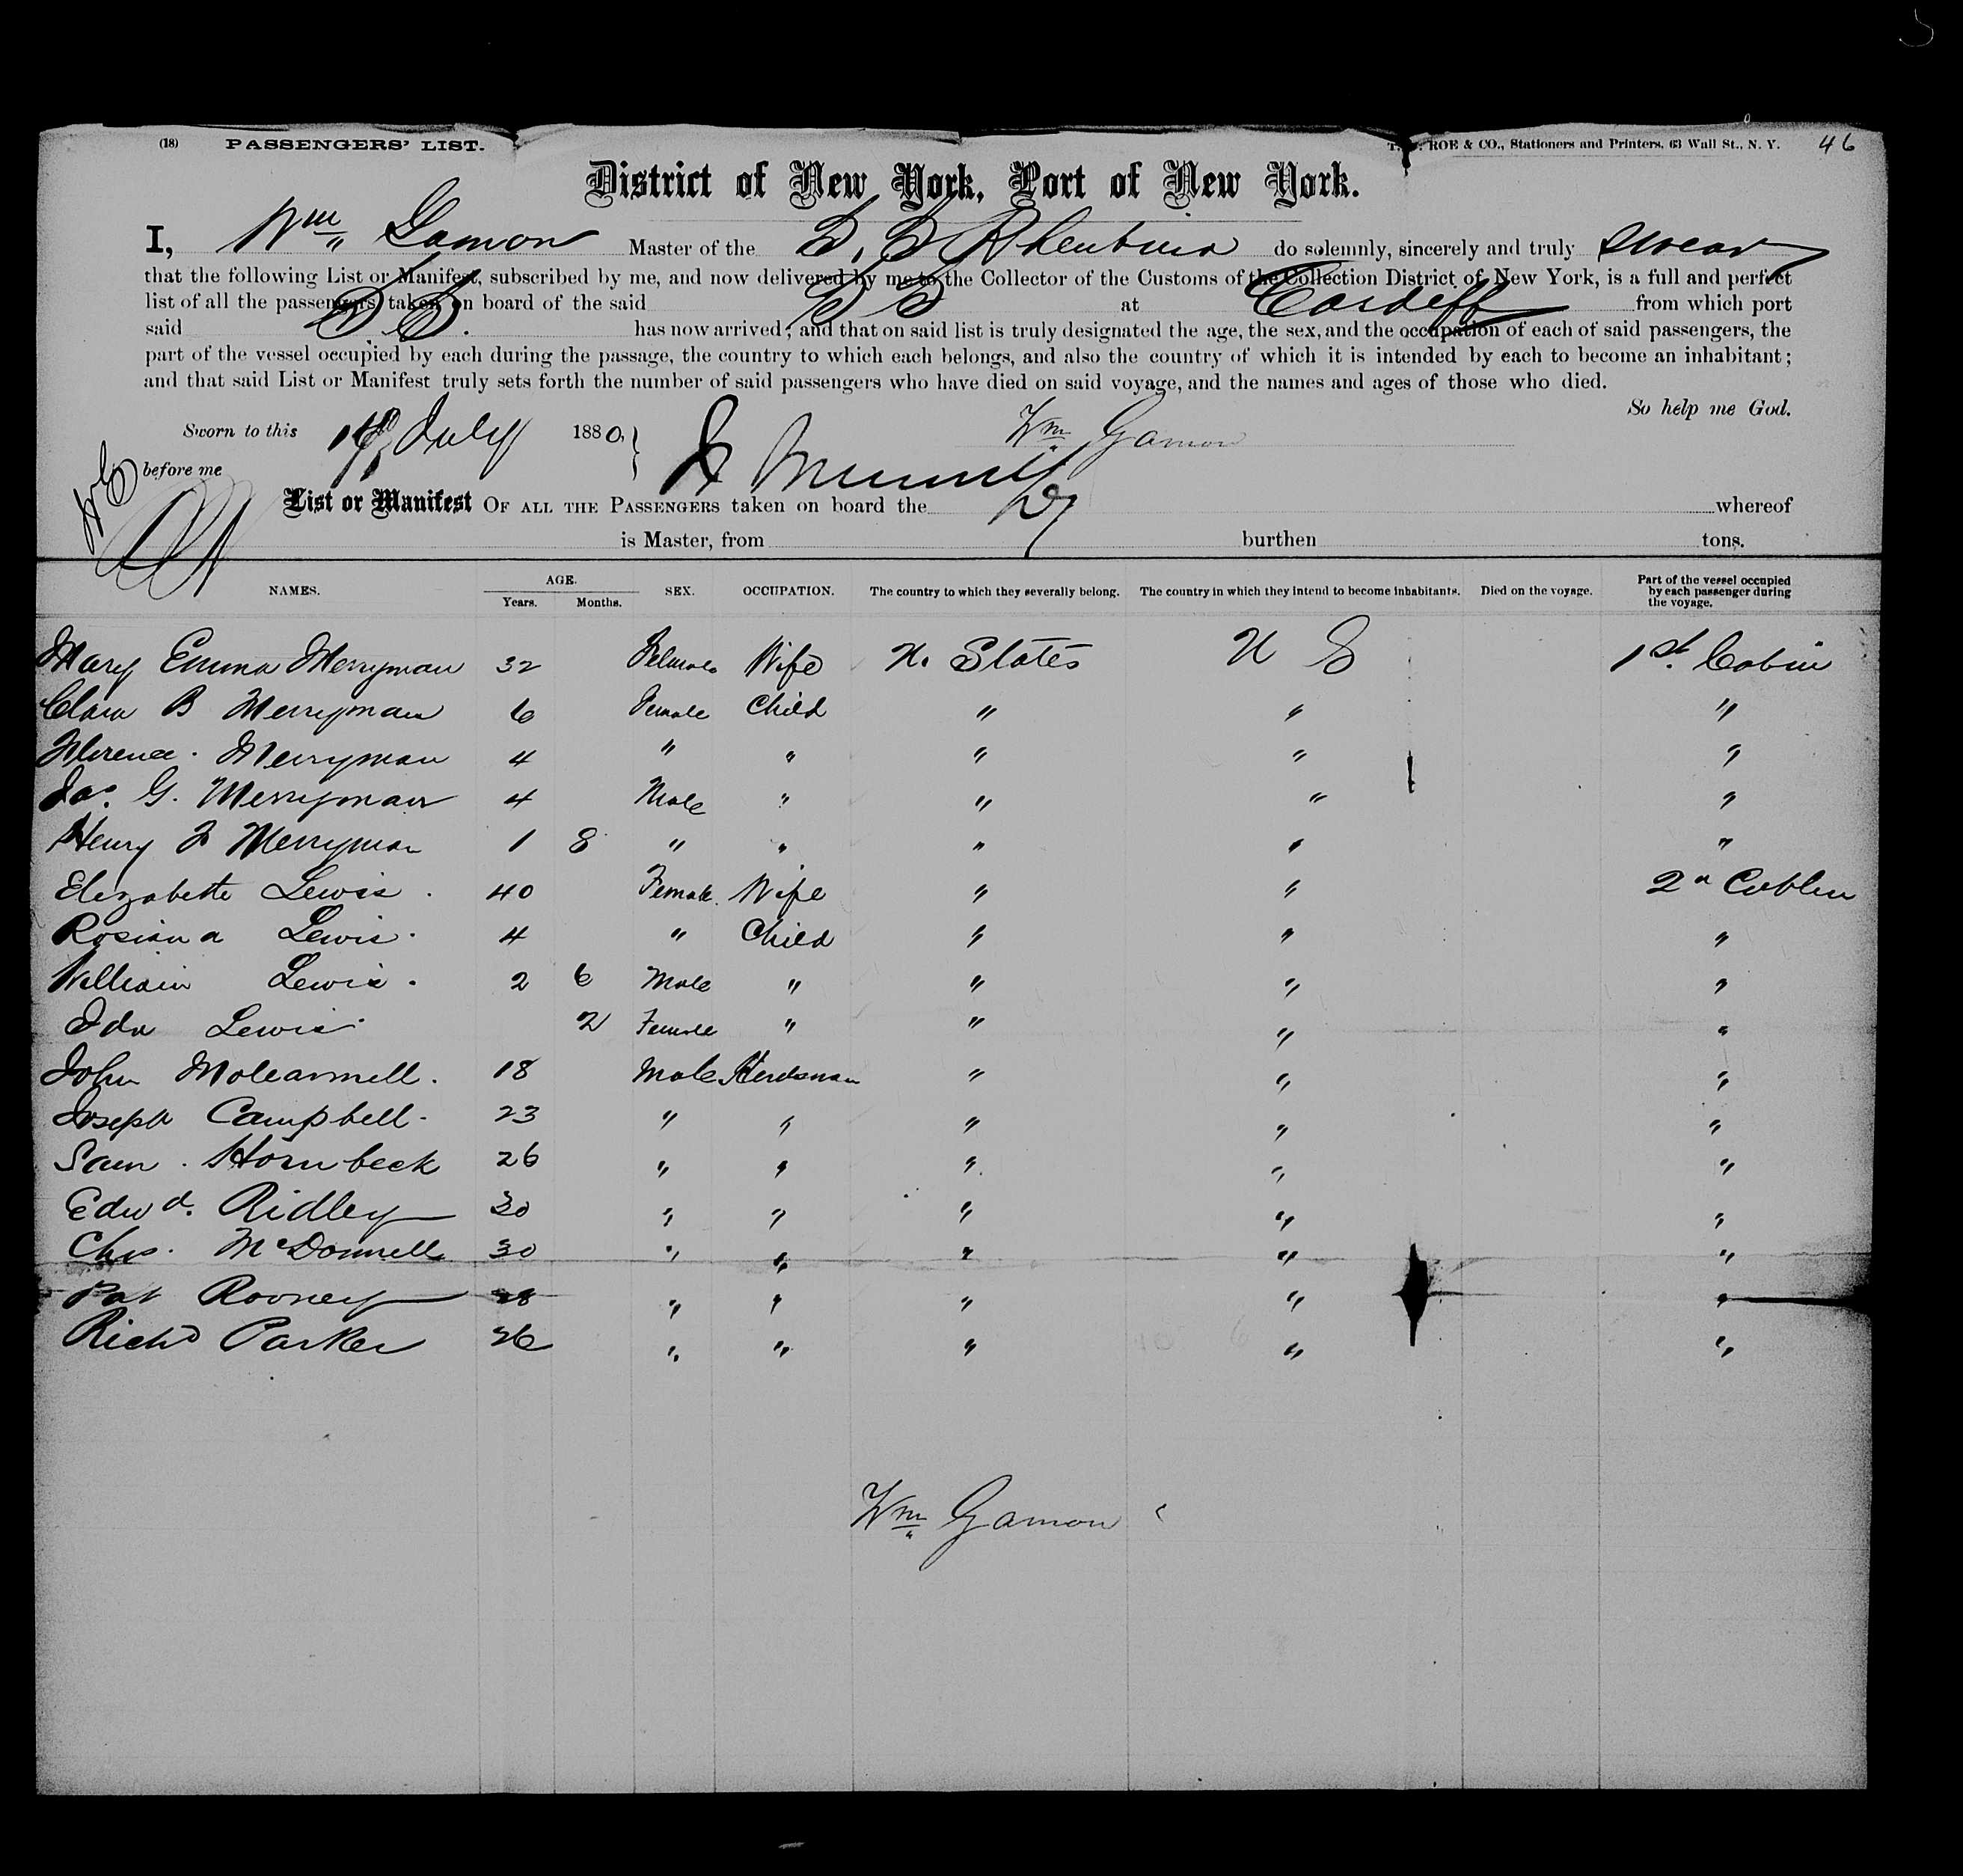 (18) PASSENGERS' LIST. ROE & CO., Stationers and Printers, 63 Wall St., N. Y. 46
District of New York, Port of New York.
I, Wm Gamon Master of the S. S. Rhenbina do solemnly, sincerely and truly swear
that the following List or Manifest, subscribed by me, and now delivered by me to the Collector of the Customs of the Collection District of New York, is a full and perfect
list of all the passengers taken on board of the said SS at Cardiff from which port
said SS. has now arrived; and that on said list is truly designated the age, the sex, and the occupation of each of said passengers, the
part of the vessel occupied by each during the passage, the country to which each belongs, and also the country of which it is intended by each to become an inhabitant;
and that said List or Manifest truly sets forth the number of said passengers who have died on said voyage, and the names and ages of those who died.
So help me God.
Sworn to this July 1880, Wm Gamon
before me
List or Manifest OF ALL THE PASSENGERS taken on board the whereof
is Master, from burthen tons.
NAMES. AGE. Years. Months. SEX. OCCUPATION. The country to which they severally belong. The country in which they intend to become inhabitants. Died on the voyage. Part of the vessel occupied by each passenger during the voyage.
Mary Emma Merryman 32 Female Wife U. States U S 1st Cabin
Clara B Merryman 6 Female Child " " "
Florence Merryman 4 " " " " "
Jas. G. Merryman 4 Male " " " "
Henry F Merryman 1 8 " " " " "
Elizabeth Lewis 40 Female Wife " " 2n Cabin
Rosiana Lewis 4 " Child " " "
William Lewis 2 6 Male " " " "
Ida Lewis 2 Female " " " "
John 18 Male Herdsman " " "
Joseph Campbell 23 " " " " "
Sam. Hornbeck 26 " " " " "
Edwd. Ridley 30 " " " " "
Chs. McDonnell 30 " " " " "
Pat Rooney 28 " " " " "
Richd Parker 26 " " " " "
Wm Gamon